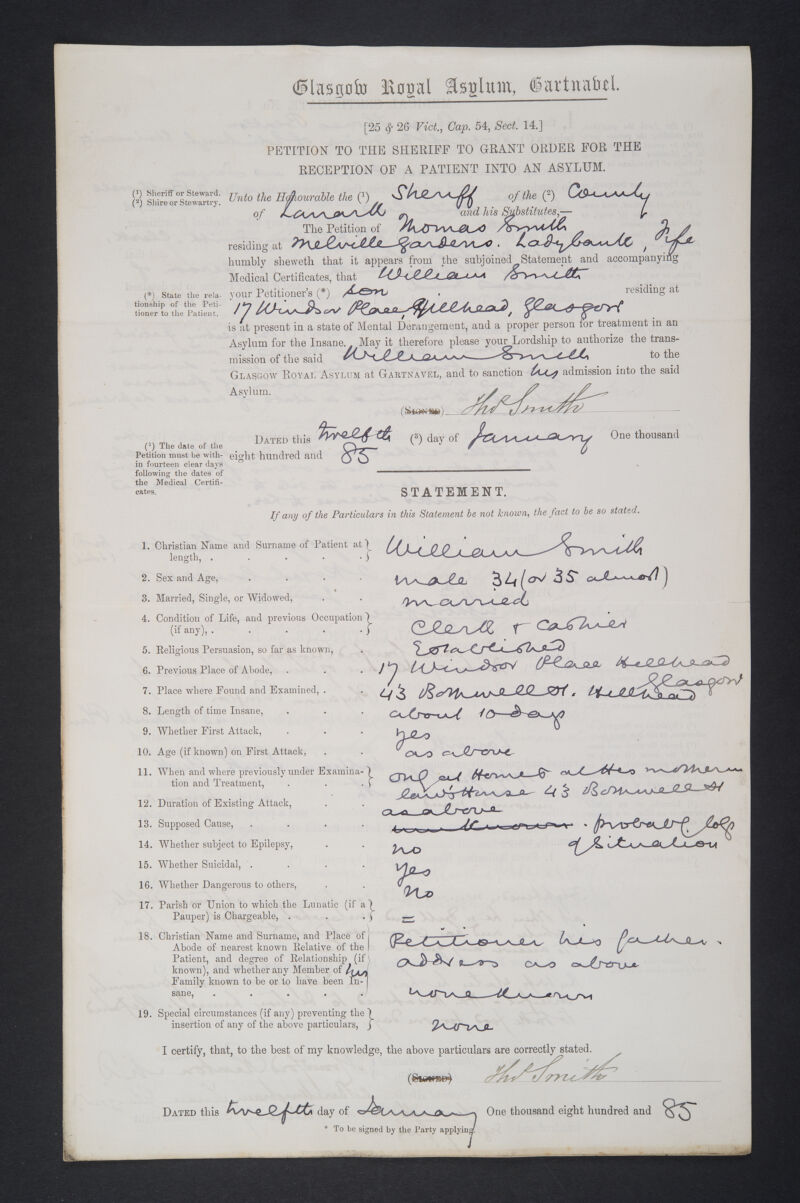 Glasgow Royal Asylum, Gartnavel.
[25 & 26 Vict., Cap. 54, Sect. 14.]
PETITION TO THE SHERIFF TO GRANT ORDER FOR THE
RECEPTION OF A PATIENT INTO AN ASYLUM.
(1) Sheriff or Steward.
(2) Shire or Stewartry.
Unto the Honourable the (1) Sheriff of the (2) County
of Lanark and his Substitutes,—
The Petition of Thomas Smith
residing at Melville Gardens. Ladybank, Fife
humbly sheweth that it appears from the subjoined Statement and accompanying
Medical Certificates, that William Smith
(*) State the rela-
tionship of the Peti-
tioner to the Patient.
your Petitioner's (*) son residing at
17 Windsor Place, Hillhead, Glasgow
is at present in a state of Mental Derangement, and a proper person for treatment in an
Asylum for the Insane. May it therefore please your Lordship to authorize the trans-
mission of the said William Smith to the
GLASGOW ROYAL ASYLUM at GARTNAVEL, and to sanction his admission into the said
Asylum.
(SIGNED) Thos Smith
(3) The date of the
Petition must be with-
in fourteen clear days
following the dates of
the Medical Certifi-
cates.
DATED this twelfth (3) day of January One thousand
eight hundred and 85
STATEMENT.
If any of the Particulars in this Statement be not known, the fact to be so stated.
1. Christian Name and Surname of Patient at
length, . William Smith
2. Sex and Age, male 34 (or 35 almost)
3. Married, Single, or Widowed, married
4. Condition of Life, and previous Occupation
(if any), . Clerk & Cashier
5. Religious Persuasion, so far as known, Established
6. Previous Place of Abode, 17 Windsor Place Hillhead
Glasgow
7. Place where Found and Examined, . 43 Bothwell St. Hillhead
8. Length of time Insane, about 10 days
9. Whether First Attack, yes
10. Age (if known) on First Attack, as above
11. When and where previously under Examina-
tion and Treatment, only at Home & at his mother in
law's House 43 Bothwell St
12. Duration of Existing Attack, as above
13. Supposed Cause, unknown. probably loss
of Situation
14. Whether subject to Epilepsy, no
15. Whether Suicidal, . yes
16. Whether Dangerous to others, No
17. Parish or Union to which the Lunatic (if a
Pauper) is Chargeable, . =
18. Christian Name and Surname, and Place of
Abode of nearest known Relative of the
Patient, and degree of Relationship (if
known), and whether any Member of his
Family known to be or to have been In-
sane, . Petitioner his father.
address as above
none known
19. Special circumstances (if any) preventing the
insertion of any of the above particulars, none
I certify, that, to the best of my knowledge, the above particulars are correctly stated.
(SIGNED) Thos Smith
DATED this twelfth day of January One thousand eight hundred and 85
* To be signed by the Party applying.